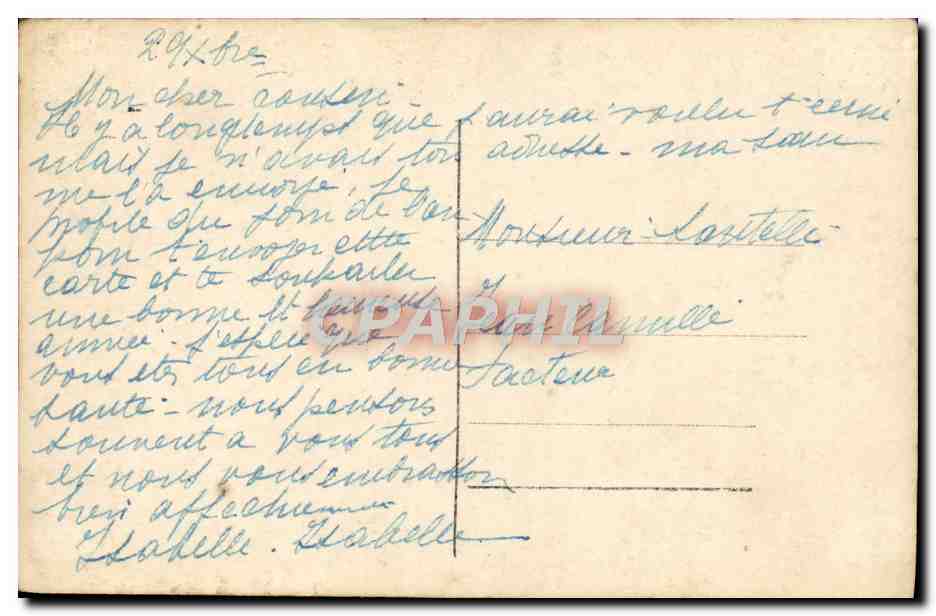 29 Xbre
Mon cher cousin
Il y a longtemps que j'aurai voulu t'ecrire
mais je n'avais ton adresse - ma sœur
me l'a envoyé, je
profite du jour de l'an
pour t'envoyer cette
carte et te souhaiter
une bonne et heureuse
année. j'espère que
vous etes tous en bonne
santé - nous pensons
souvent a vous tous
et nous vous embrassons
bien affectueusement
Isabelle. Isabelle
Monsieur
Camille
facteur
CPAPHIL